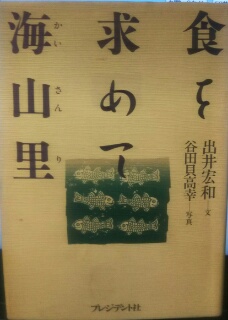 食を
求めて
海山里
かいさんり
出井宏和—文
谷田貝高幸—写真
プレジデント社